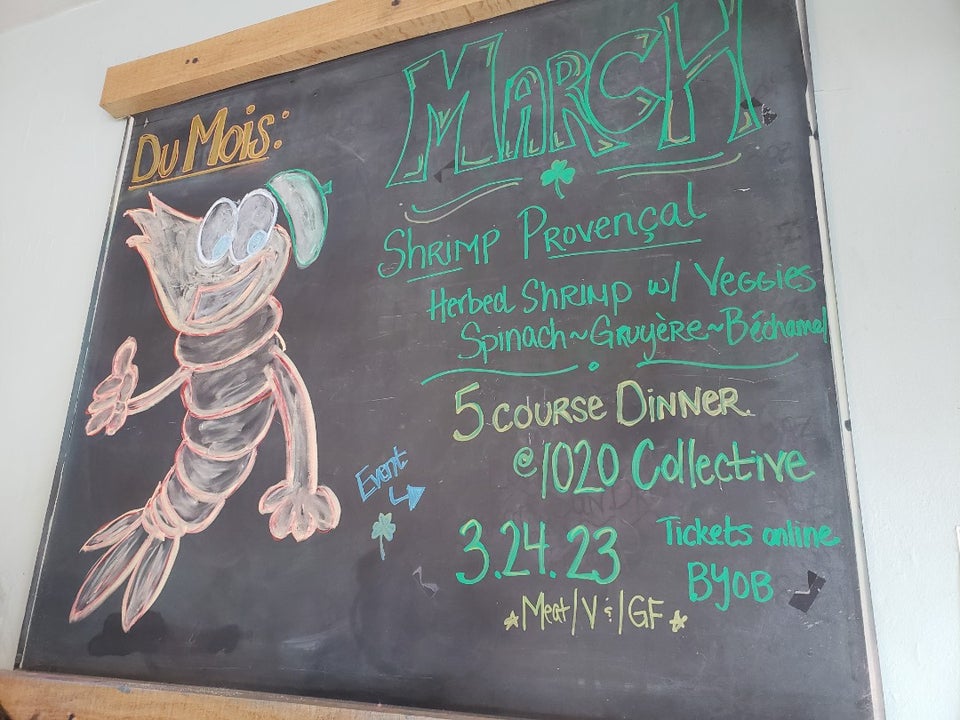 Du Mois:
MARCH
SHRIMP PROVENÇal
Herbed SHRIMP w/ VEGGIES
Spinach~GRUYÈRE~Béchamel
5 COURSE DINNER
@1020 Collective
Event
3.24.23
Tickets online
BYOB
Meat/V&/GF